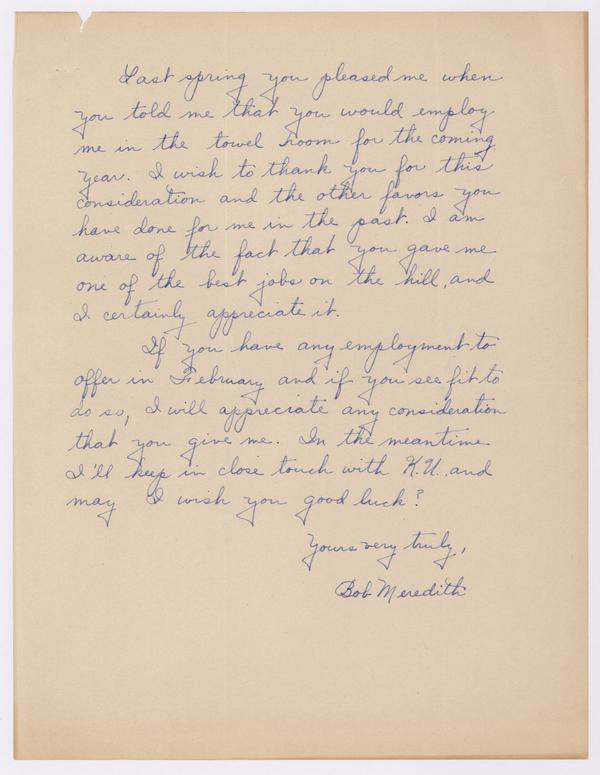 Last spring you pleased me when
you told me that you would employ
me in the towel room for the coming
year. I wish to thank you for this
consideration and the other favors you
have done for me in the past. I am
aware of the fact that you gave me
one of the best jobs on the hill, and
I certainly appreciate it.
If you have any employment to
offer in February and if you see fit to
do so, I will appreciate any consideration
that you give me. In the meantime
I'll keep in close touch with K.U. and
may I wish you good luck?
Yours very truly,
Bob Meredith